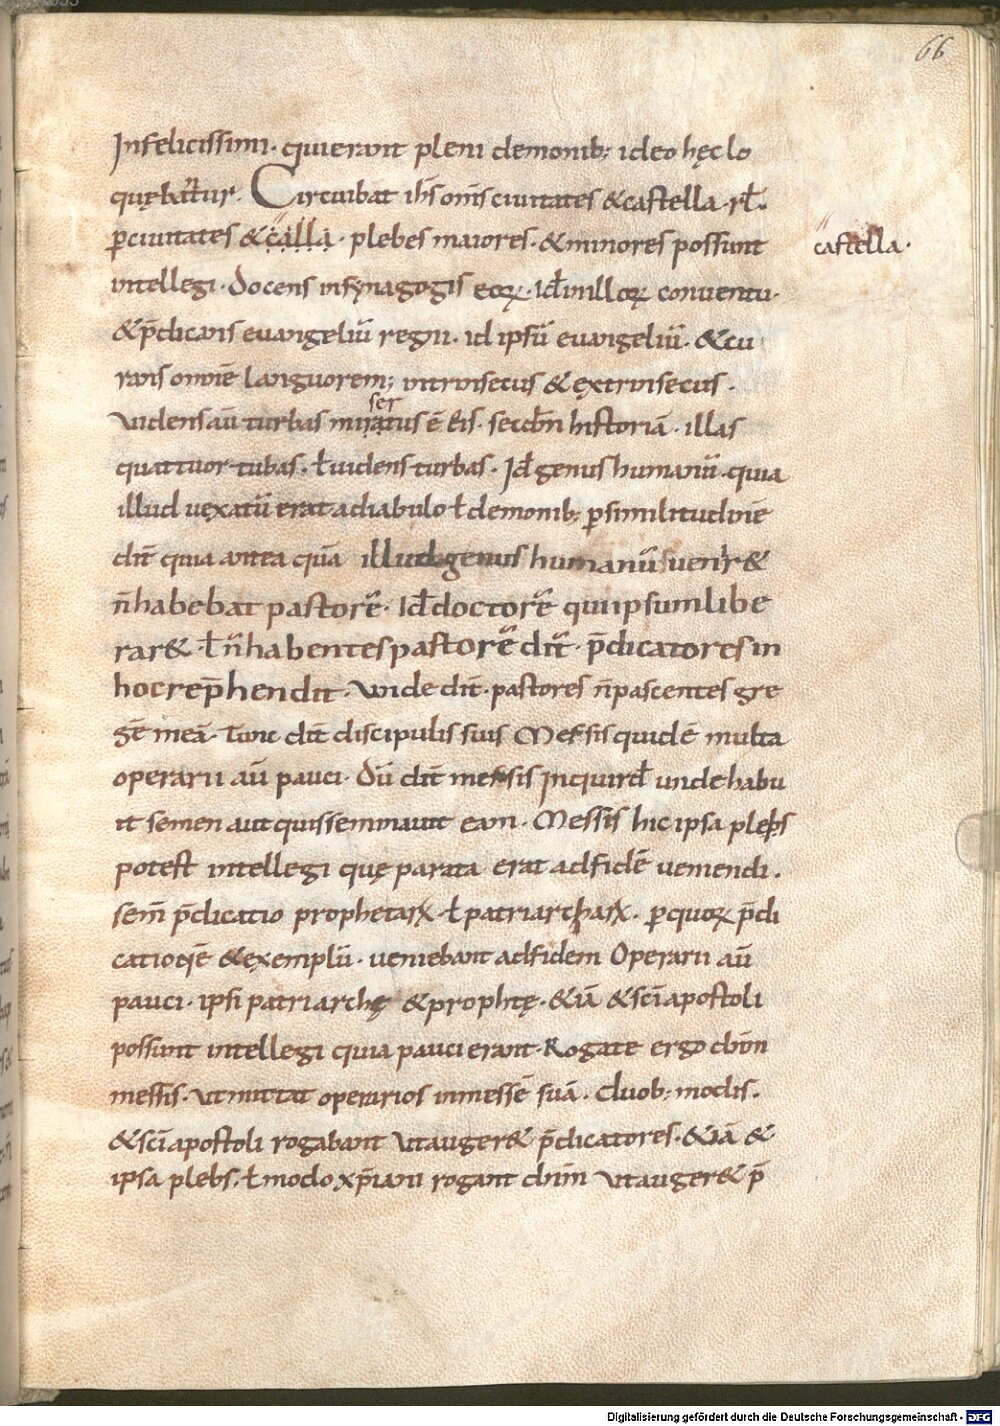 66
Infelicissimi· quierant pleni demonib; ideo hęc lo
quębantur· Circuibat ih̄s om̄s ciuitates &castella· rł·
ꝑciuitates &calla· plebes maiores· &minores possunt
castella·
intellegi· Docens insynagogis eoꝝ· Id̄ inilloꝝ conuentu·
&p̄dicans euangeliū regni· id ipsū euangeliū· &cu
rans omnē languorem; intrinsecus &extrinsecus·
ser
Uidens aū turbas miratus ē eis· seccdn̄ historiā· illas
quattuor turbas· ł uidens turbas· Id̄ genus humanū· quia
illud uexatū erat adiabulo ł demonib; ꝑsimilitudinē
dict̄ quia antea quā illud genus humanū uenir&
n̄habebat pastorē· Id̄ doctorē quiipsumlibe
rar& ·ł n̄habentespastorē dict̄· p̄dicatores in
hocrep̄hendit· Unde dict̄· pastores n̄pascentes gre
gē meā· Tunc dict̄ discipulis suis Messis quidē multa
operarii aū pauci· Dū dict̄ messis Inquird̄ unde habu
it semen aut quisseminauit eam· Messis hic ipsa plebs
potest intellegi quę parata erat adfidē ueniendi·
sem̄ p̄dicatio prophetaꝝ ·ł patriarchaꝝ· ꝑquoꝝ p̄di
cationē &exemplū· ueniebant adfidem Operarii aū
pauci· ipsi patriarchę &prophtę· &iā &sc̄i apostoli
possunt intellegi quia pauci erant· Rogate ergo dnm̄
messis· Ut mittat operarios inmessē suā· duob; modis·
&sc̄iapostoli rogabant Utauger& p̄dicatores· &iā &
ipsa plebs; ł modo xp̄iani rogant dnm̄ Utauger& p̄
Digitalisierung gefördert durch die Deutsche Forschungsgemeinschaft - DFG